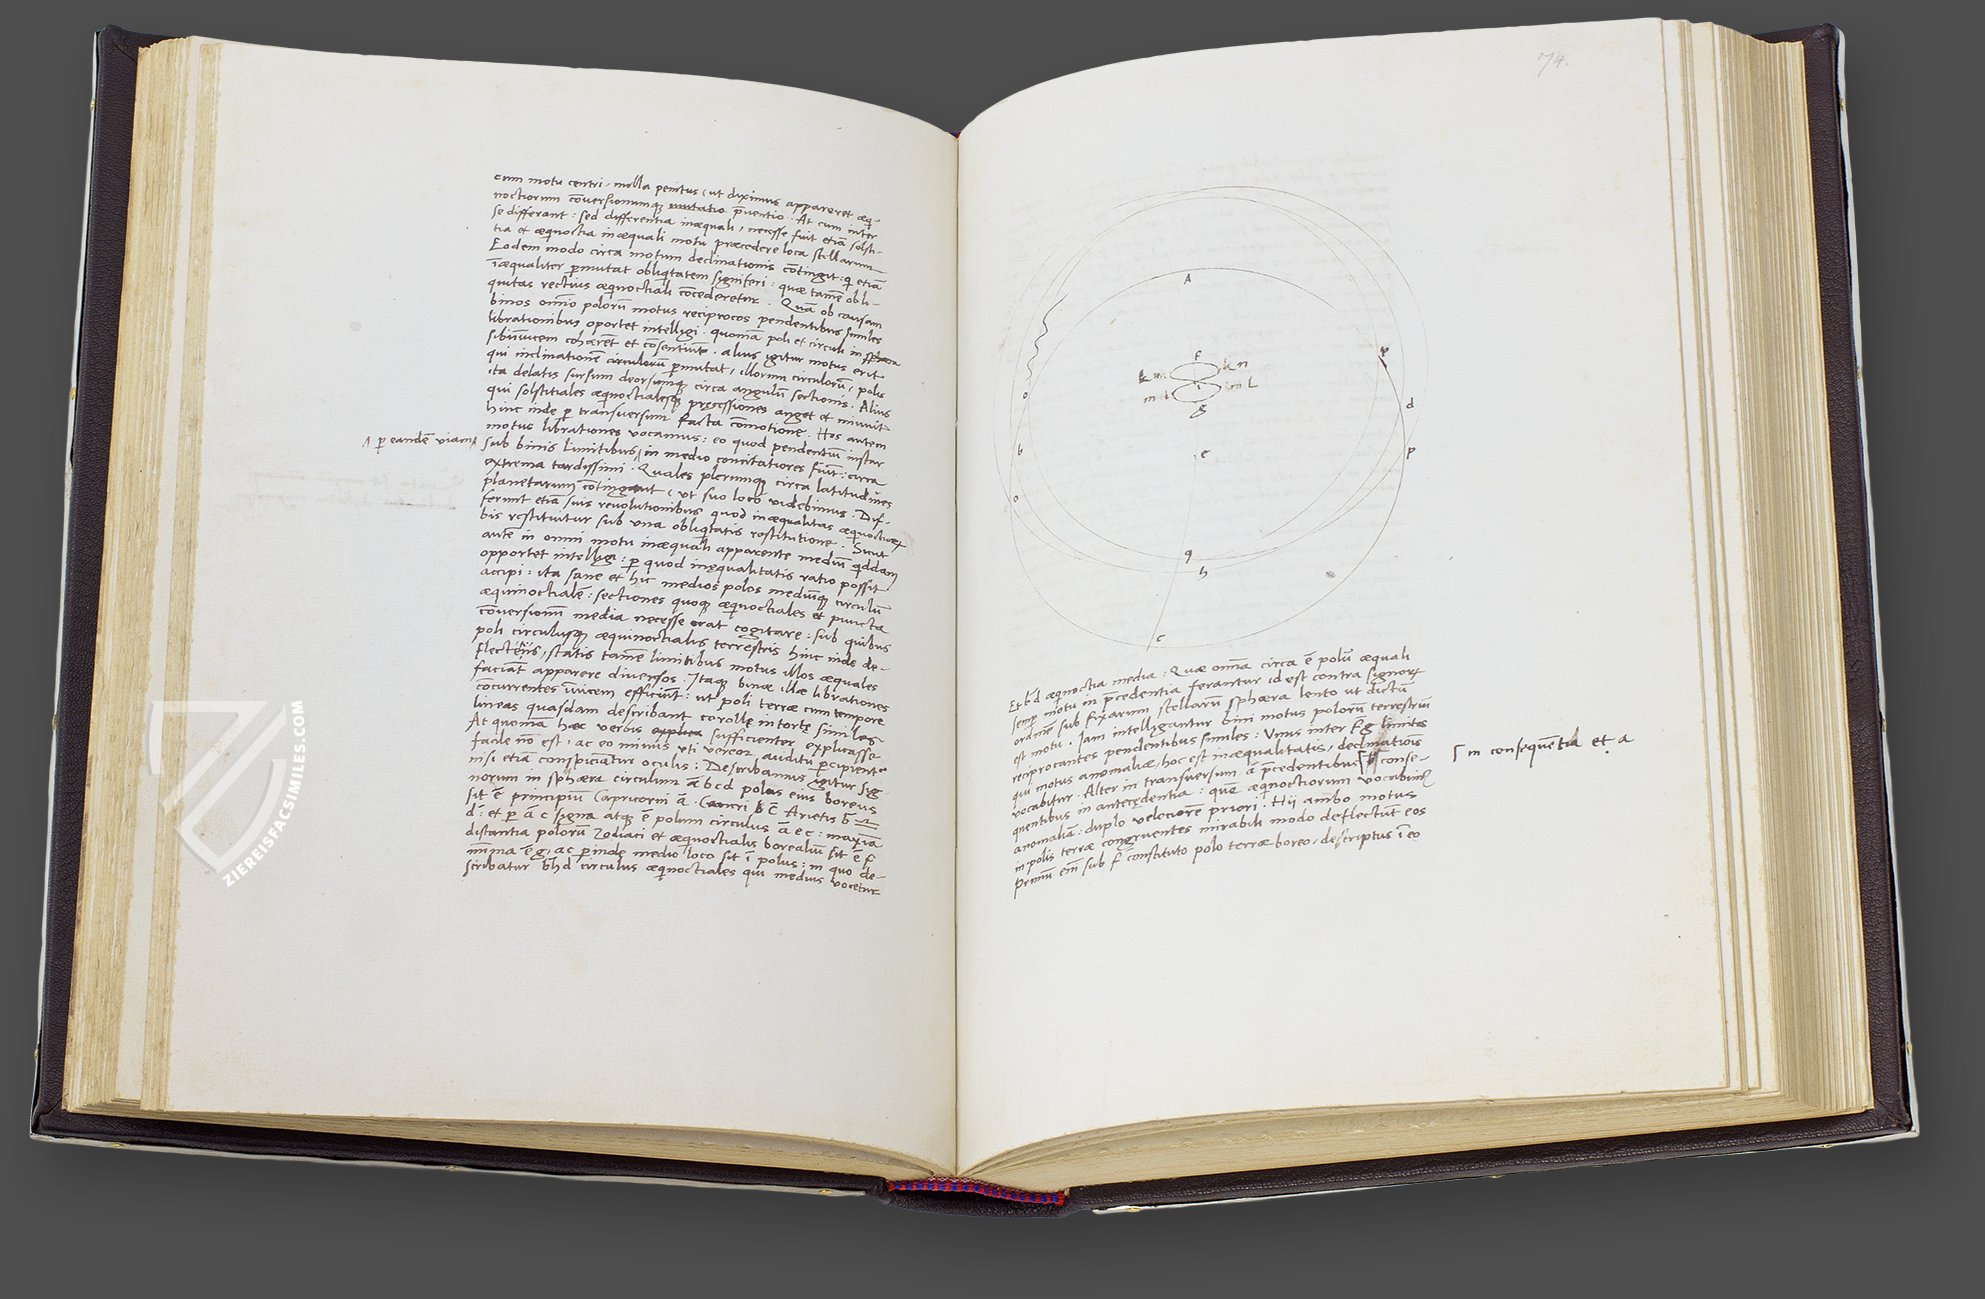 cum motu centri, nulla penitus (ut diximus appareret æq-
noctiorum cōversionumq; mutatio p̄ventio. At cum inter
se differant: sed differentia inæquali, necesse fuit etiā solsti-
tia et æqnoctia inæquali motu præcedere loca stellarum
Eodem modo circa motum declinationis cōtingit: q etiā
īæqualiter pmutat obliqtatem signiferi: quæ tamē obli-
quitas rectius æqnoctiali cōcederetur. Quā ob causam
binos omīo polorū motus reciprocos pendentibus similes
librationibus oportet intelligi. quoniā poli et circuli in sphæra
sibiīuicem cohærēt et cōsentiūt. alius igitur motus erit
qui inclinationē circulorū pmutat, illorum circulorū, polis
ita delatis sursum deorsumq; circa angulū sectionis. Alius
qui solstitiales æqnoctialesq; pręcessiones auget et minuit
hinc inde p transversum facta cōmotione. Hos autem
motus librationes vocamus: eo quod pendentiū instar
/\ p eandē viam /\
sub binis limitibus /\ in medio concitatiores fiūt: circa
extrema tardissimi. Quales plerumq; circa latitudines
planetarum cōtingunt (ut suo loco videbimus. Dif-
ferunt etiā suis revolutionibus quod inæqualitas æqnoctiorū
bis restituitur sub una obliqtatis restitutione. Sicut
autē in omni motu inæquali apparente mediū qddam
opportet intelligi: p quod inęqualitatis ratio possit
accipi: ita sane et hic medios polos mediūq; circulū
æquinoctialē: sectiones quoq; æqnoctiales et puncta
cōversionū media necesse erat cogitare: sub quibus
poli circulusq; æquinoctialis terrestris hinc inde de-
flectētiis, statis tamē limitibus motus illos æquales
faciāt apparere diversos. Itaq; binæ illæ librationes
cōcurrentes īuicem efficiūt: ut poli terræ cum tempore
lineas quasdam describant corollę intortę similes
At quoniā hæc verbis explica sufficienter explicasse
facile nō est, ac eo minus uti vereor auditu pcipientr
nisi etiā conspiciatur oculis: Describamus igitur sig
norum in sphæra circulum ābcd polus eius boreus
sit ē principiū Capricorni ā. Cancri c̄ Arietis b̄
d̄: et p ā c signa atq; ē polum circulus ā e c: maxīa
distantia polorū zodiaci et æqnoctialis borealiū sit ē f
mīma ē g, ac pinde medio loco sit ī polus: in quo de-
scribatur b̄hd circulus æqnoctiales qui medius vocetur
74.
A
F
k m
k n
m l
m L
g
o
p
b
d
o
p
e
q
h
c
Et b̄d æqnoctia media: Quæ omīa circa ē polū æquali
semp motu in p̄cedentia ferantur id est contra signorū
ordinē sub fixarum stellarū sphæra lento ut dictū
est motu. Iam intelligantur bini motus polorū terrestriū
reciprocantes pendentibus similes: Unus inter f̄g limites
qui motus anomaliæ, hoc est inæqualitatis, declinationis
vocabitur. Alter in transversum ā p̄cedentibus Γ conse-
Γ in consequētia et. a
quentibus in antecędentia: quē æqnoctiorum vocabimus
anomaliā: duplo velociorē priori. Hij ambo motus
in polis terræ congruentes mirabili modo deflectūt eos
Primū em̄ sub f̄ constituto polo terræ boreo, descriptus ī eo
ZIEREISFACSIMILES.COM